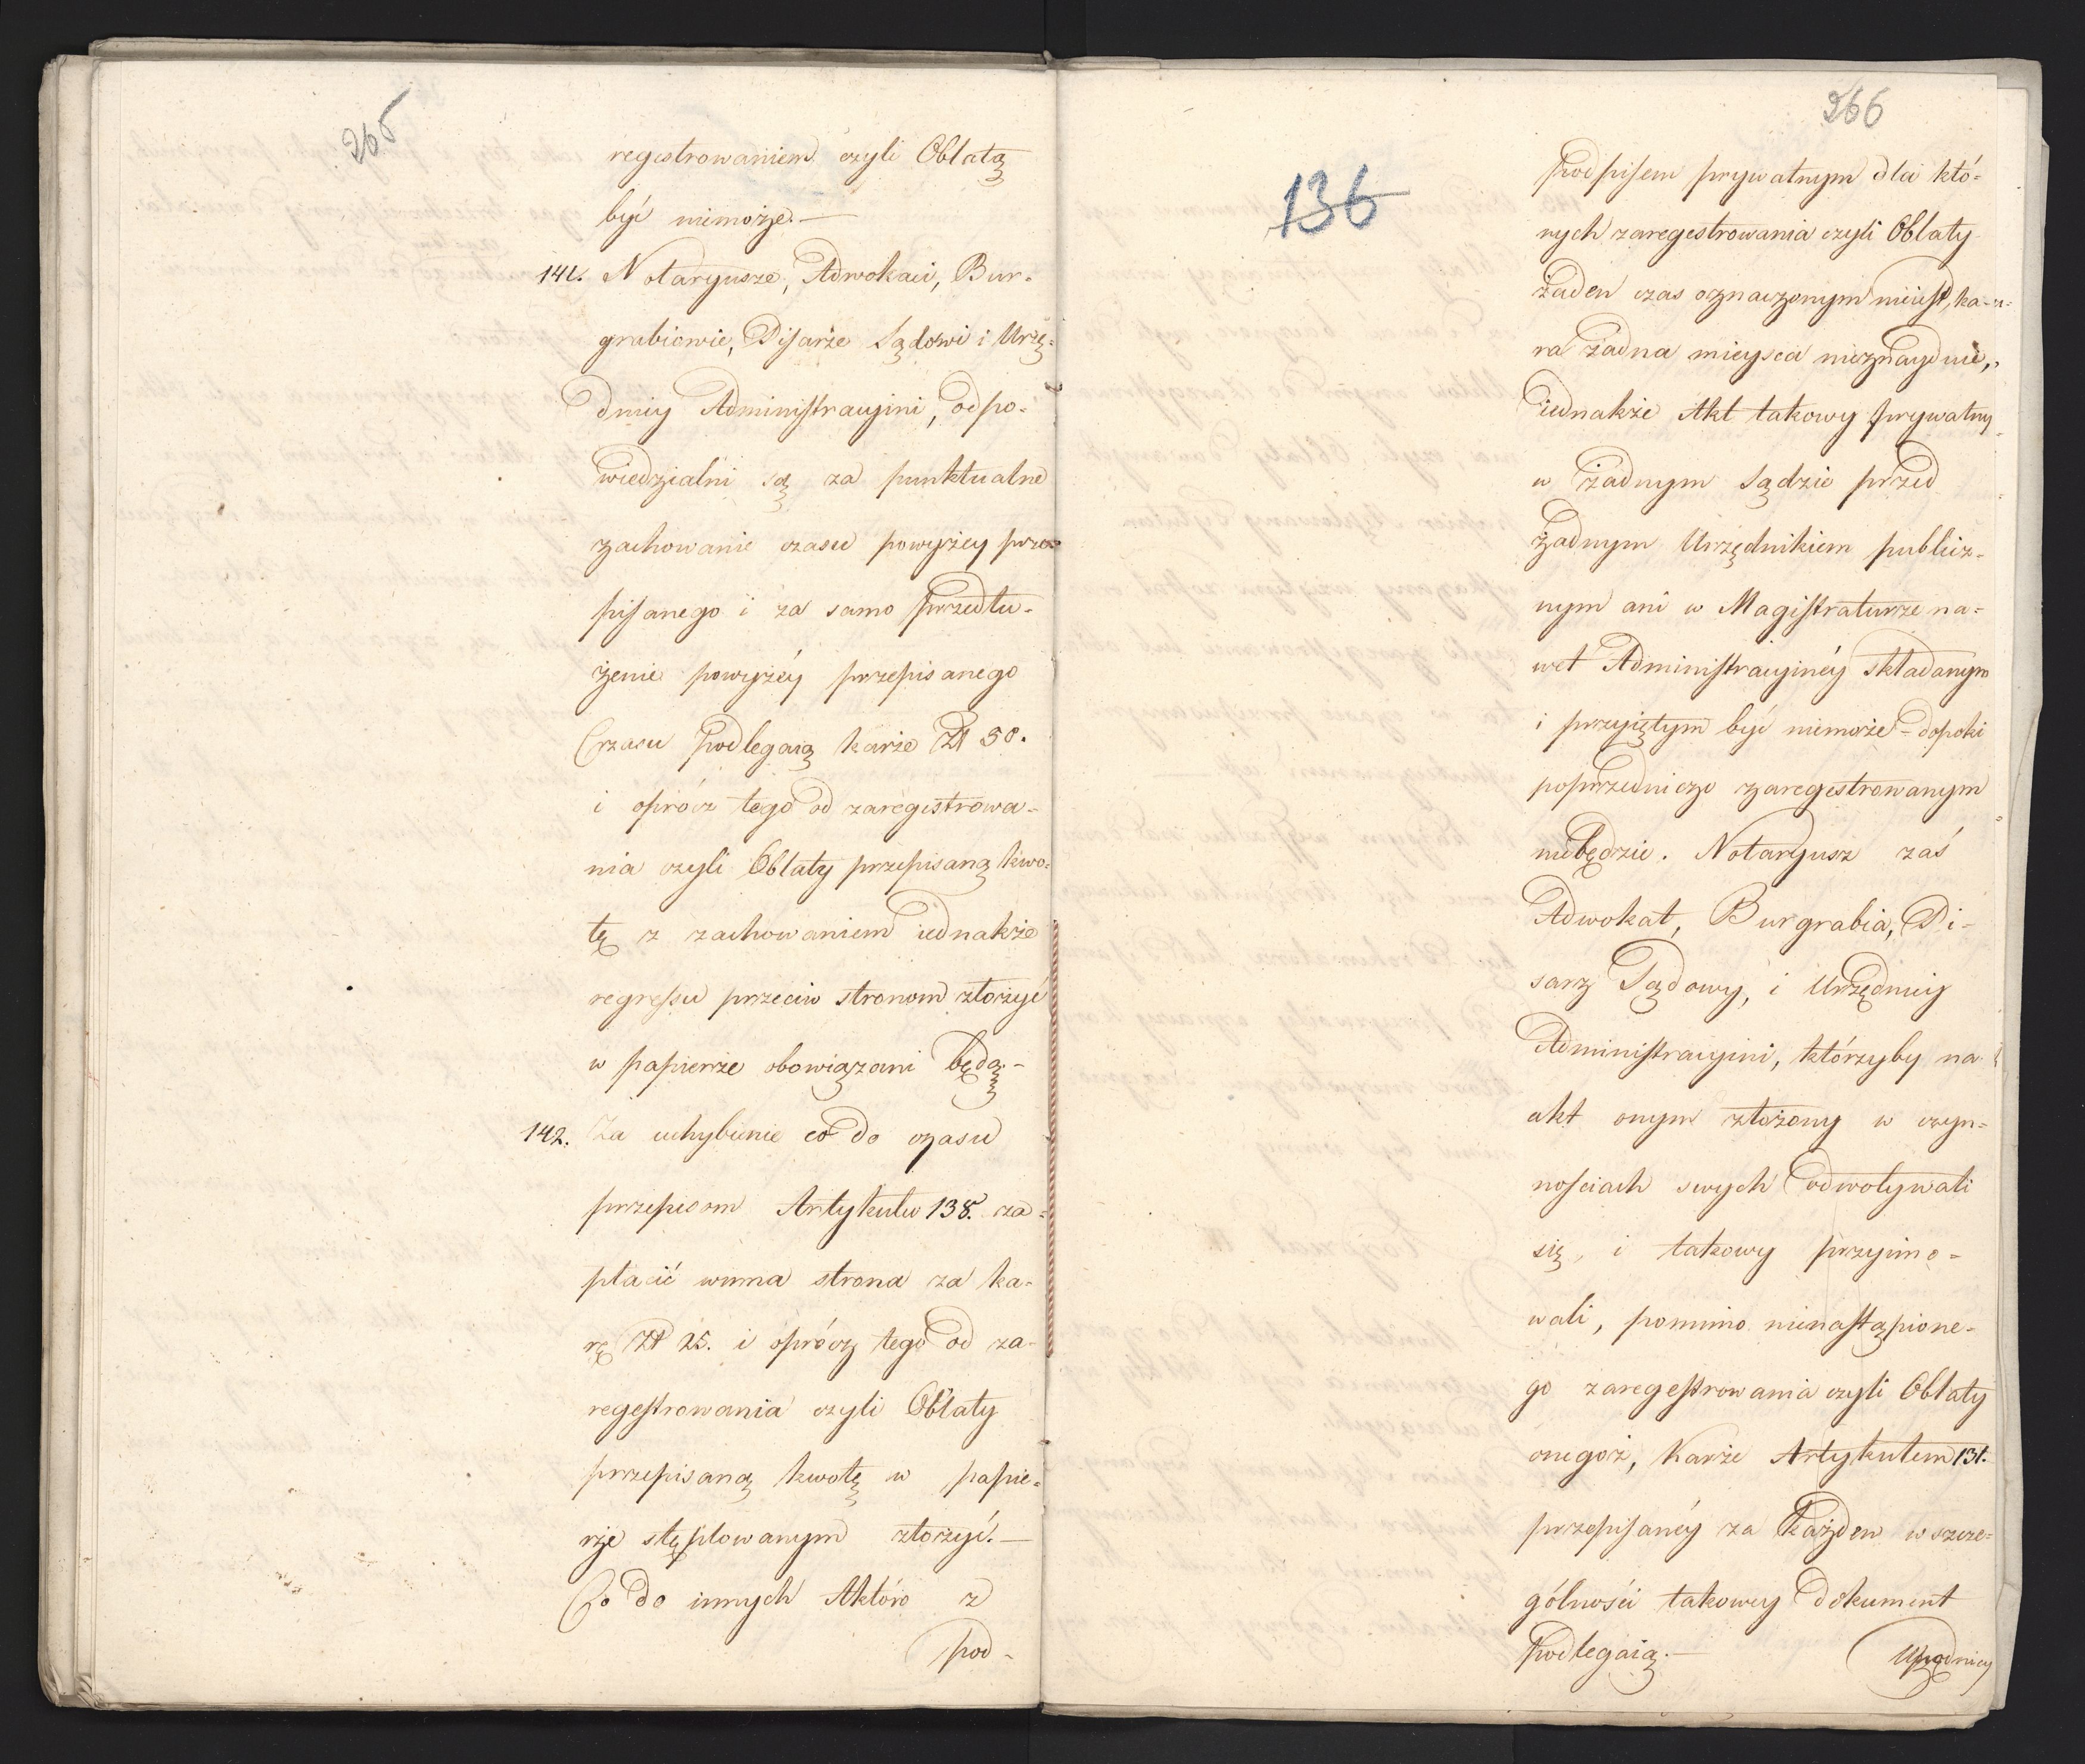 265
regestrowaniem czyli Oblatą
być niemoże. —
141. Notaryusze, Adwokaci, Bur-
grabiowie, Pisarze Sądowi i Urzę-
dnicy Administracyini, odpo-
wiedzialni są za punktualne
zachowanie czasu powyżey prze-
pisanego i za samo przedłu-
żenie powyżéy przepisanego
Czasu podlegaią karze Zł 50.
i oprócz tego od zaregistrowa-
nia czyli Oblaty przepisaną kwo-
tę z zachowaniem iednakże
regressu przeciw stronom złożyć
w papierze obowiązani będą. -
142. Za uchybienie co do czasu
przepisom Artykułu 138. za-
płacić winna strona za ka-
rę Zł 25. i oprócz tego od za-
regestrowania czyli Oblaty
przepisaną kwotę w papie-
rze stęplowanym złożyć. —
Co do innych Aktów z
pod-
266
136
podpisem prywatnym dla któ-
rych zaregestrowania czyli Oblaty
żaden czas oznaczonym nieiest, ka-
ra żadna mieysca nieznayduie,
iednakże Akt takowy prywatny
w żadnym Sądzie przed
żadnym Urzędnikiem publicz-
nym ani w Magistraturze na-
wet Administracyinéy składanym
i przyiętym być niemoże - dopoki
poprzedniczo zaregestrowanym
niebędzie. Notaryusz zaś
Adwokat, Burgrabia, Pi-
sarz Sądowy, i Urzędnicy
Administracyini, którzyby na
akt onym złożony w czyn-
nościach swych odwoływali
się, i takowy przyimo-
wali, pomimo nienastąpione-
go zaregestrowania czyli Oblaty
onegoż, Karze Artykułem 131.
przepisanéy za każden w szcze-
gólności takowy dokument
podlegaią. —
Urzędnicy